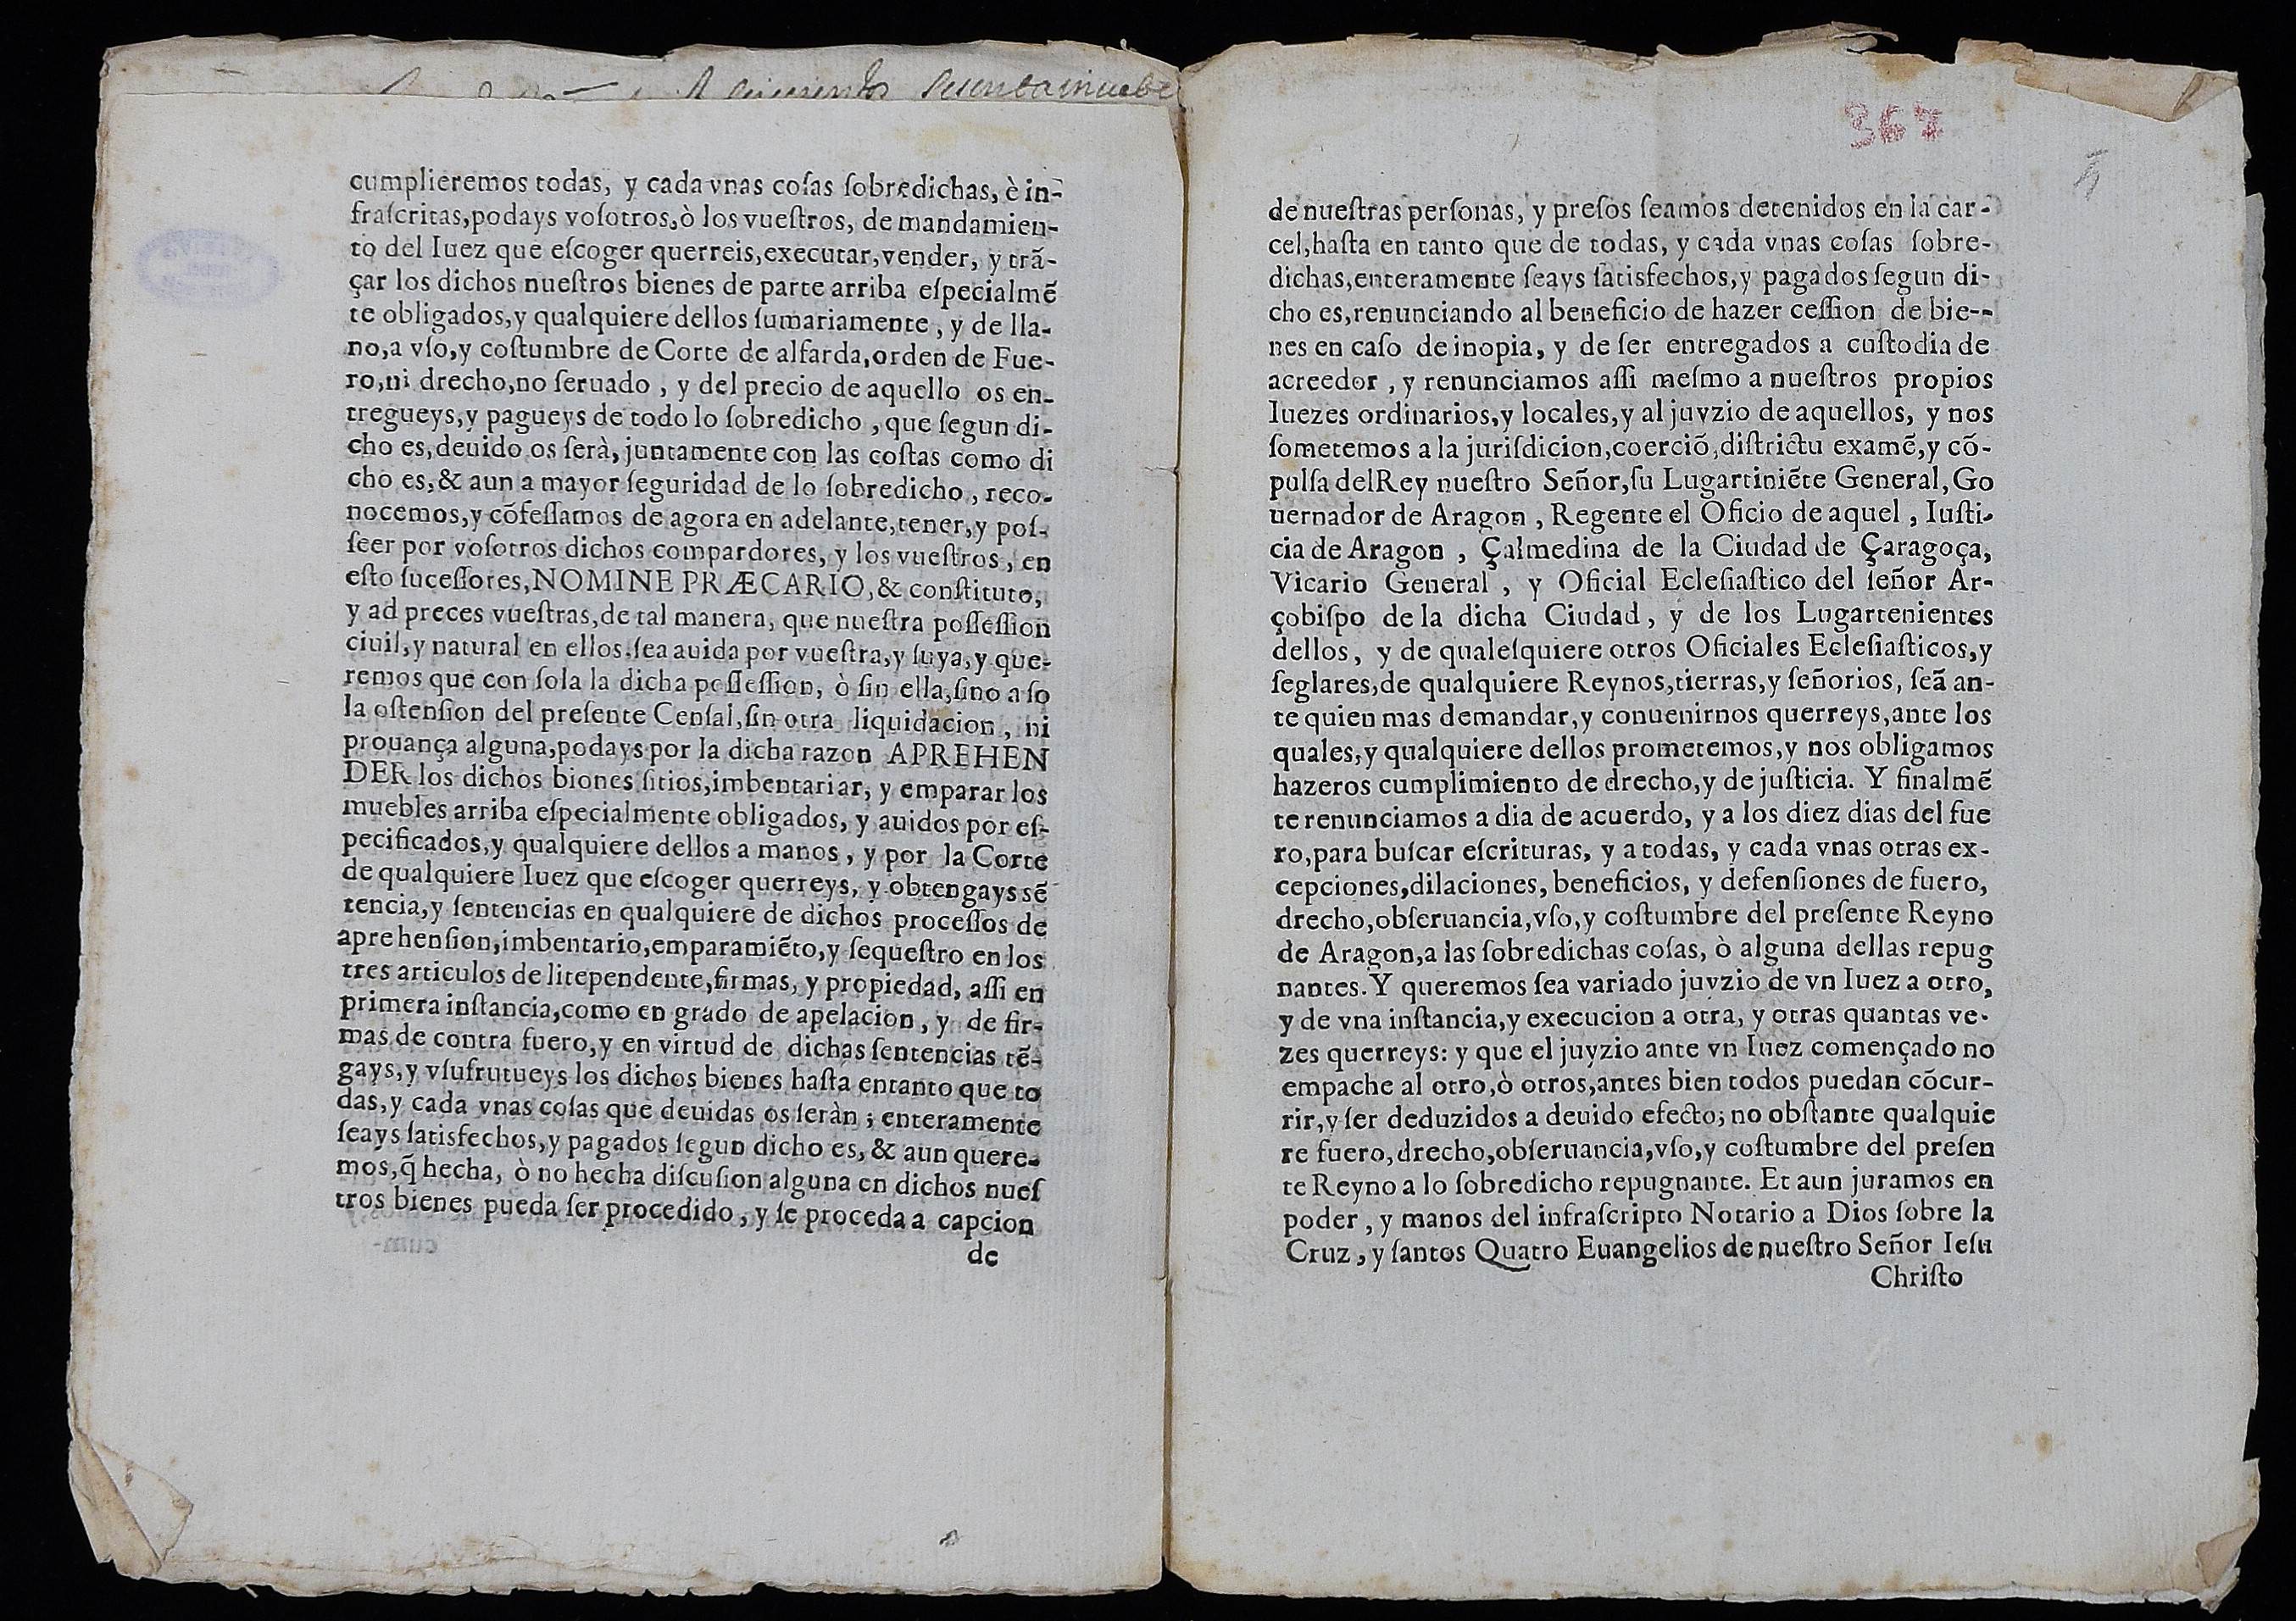 cumplieremos todas, y cada vnas coſas ſobredichas, è in-
fraſcritas,podays voſotros,ò los vueſtros, de mandamien-
to del Iuez que eſcoger querreis,executar,vender, y trã-
çar los dichos nueſtros bienes de parte arriba eſpecialmẽ
te obligados,y qualquiere dellos ſumariamente, y de lla-
no,a vſo,y coſtumbre de Corte de alfarda,orden de Fue-
ro,ni drecho,no ſeruado, y del precio de aquello os en-
tregueys,y pagueys de todo lo ſobredicho, que ſegun di-
cho es, deuido os ſerà, juntamente con las coſtas como di
cho es,& aun a mayor ſeguridad de lo ſobredicho, reco-
nocemos,y cõfeſſamos de agora en adelante,tener,y poſ-
ſeer por voſotros dichos compardores, y los vueſtros, en
eſto ſuceſſores,NOMINE PRÆCARIO,& conſtituto,
y ad preces vueſtras,de tal manera, que nueſtra poſſeſſion
ciuil,y natural en ellos.ſea auida por vueſtra,y ſuya,y que-
remos que con ſola la dicha poſſeſſion, ò ſin ella,ſino a ſo
la oſtenſion del preſente Cenſal,ſin otra liquidacion, ni
prouança alguna,podays por la dicha razon APREHEN
DER los dichos biones ſitios,imbentariar, y emparar los
muebles arriba eſpecialmente obligados, y auidos por eſ-
pecificados,y qualquiere dellos a manos, y por la Corte
de qualquiere Iuez que eſcoger querreys, y obtengays sẽ
tencia,y ſentencias en qualquiere de dichos proceſſos de
aprehenſion,imbentario,emparamiẽto,y ſequeſtro en los
tres articulos de litependente,firmas, y propiedad, aſſi en
primera inſtancia,como en grado de apelacion, y de fir-
mas de contra fuero,y en virtud de dichas ſentencias tẽ-
gays,y vſufrutueys los dichos bienes haſta entanto que to
das,y cada vnas coſas que deuidas os ſeràn; enteramente
ſeays ſatisfechos,y pagados ſegun dicho es, & aun quere-
mos,q̃ hecha, ò no hecha diſcuſion alguna en dichos nueſ
tros bienes pueda ſer procedido, y ſe proceda a capcion
de
367
de nueſtras perſonas, y preſos ſeamos detenidos en la car-
cel,haſta en tanto que de todas, y cada vnas coſas ſobre-
dichas,enteramente ſeays ſatisfechos,y pagados ſegun di-
cho es,renunciando al beneficio de hazer ceſſion de bie--
nes en caſo de inopia, y de ſer entregados a cuſtodia de
acreedor, y renunciamos aſſi meſmo a nueſtros propios
Iuezes ordinarios,y locales,y al juyzio de aquellos, y nos
ſometemos a la juriſdicion,coerciõ,diſtrictu examẽ,y cõ-
pulſa delRey nueſtro Señor,ſu Lugartiniẽte General, Go
uernador de Aragon, Regente el Oficio de aquel, Iuſti-
cia de Aragon, Çalmedina de la Ciudad de Çaragoça,
Vicario General, y Oficial Ecleſiaſtico del ſeñor Ar-
çobiſpo de la dicha Ciudad, y de los Lugartenientes
dellos, y de qualeſquiere otros Oficiales Ecleſiaſticos,y
ſeglares,de qualquiere Reynos,tierras,y ſeñorios, ſeã an-
te quien mas demandar,y conuenirnos querreys,ante los
quales,y qualquiere dellos prometemos,y nos obligamos
hazeros cumplimiento de drecho,y de juſticia. Y finalmẽ
te renunciamos a dia de acuerdo, y a los diez dias del fue
ro,para buſcar eſcrituras, y a todas, y cada vnas otras ex-
cepciones,dilaciones, beneficios, y defenſiones de fuero,
drecho,obſeruancia,vſo,y coſtumbre del preſente Reyno
de Aragon,a las ſobredichas coſas, ò alguna dellas repug
nantes. Y queremos ſea variado juyzio de vn Iuez a otro,
y de vna inſtancia,y execucion a otra, y otras quantas ve-
zes querreys: y que el juyzio ante vn Iuez començado no
empache al otro,ò otros,antes bien todos puedan cõcur-
rir,y ſer deduzidos a deuido efecto; no obſtante qualquie
re fuero,drecho,obſeruancia,vſo,y coſtumbre del preſen
te Reyno a lo ſobredicho repugnante. Et aun juramos en
poder, y manos del infraſcripto Notario a Dios ſobre la
Cruz, y ſantos Quatro Euangelios de nueſtro Señor Ieſu
Chriſto